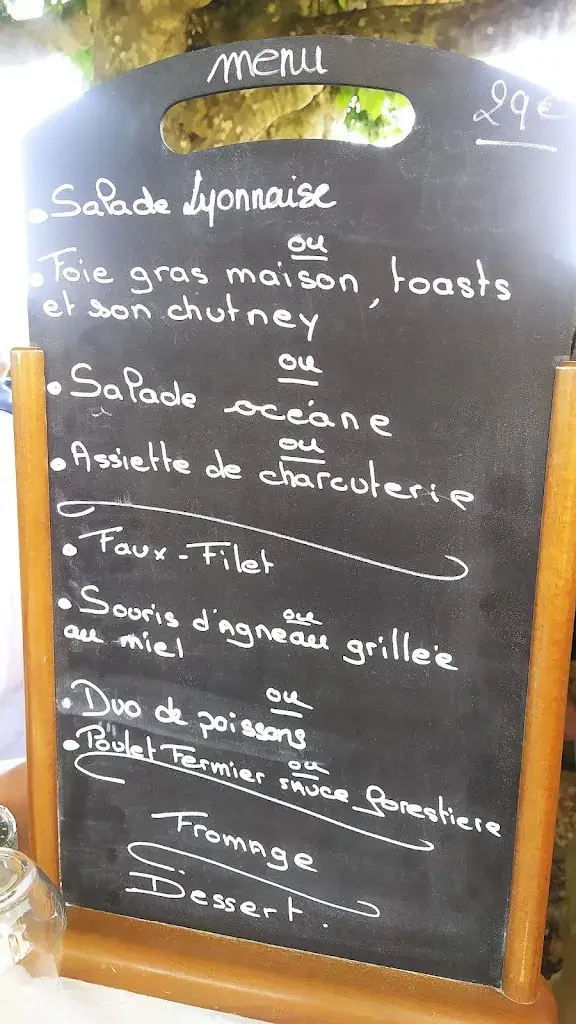 menu
29€
• Salade Lyonnaise
ou
• Foie gras maison, toasts
et son chutney
ou
• Salade océane
ou
• Assiette de charcuterie
• Faux-Filet
ou
• Souris d'Agneau grilleé
au miel
ou
• Duo de poissons
ou
• Poulet Fermier sauce forestiere
Fromage
Dessert.